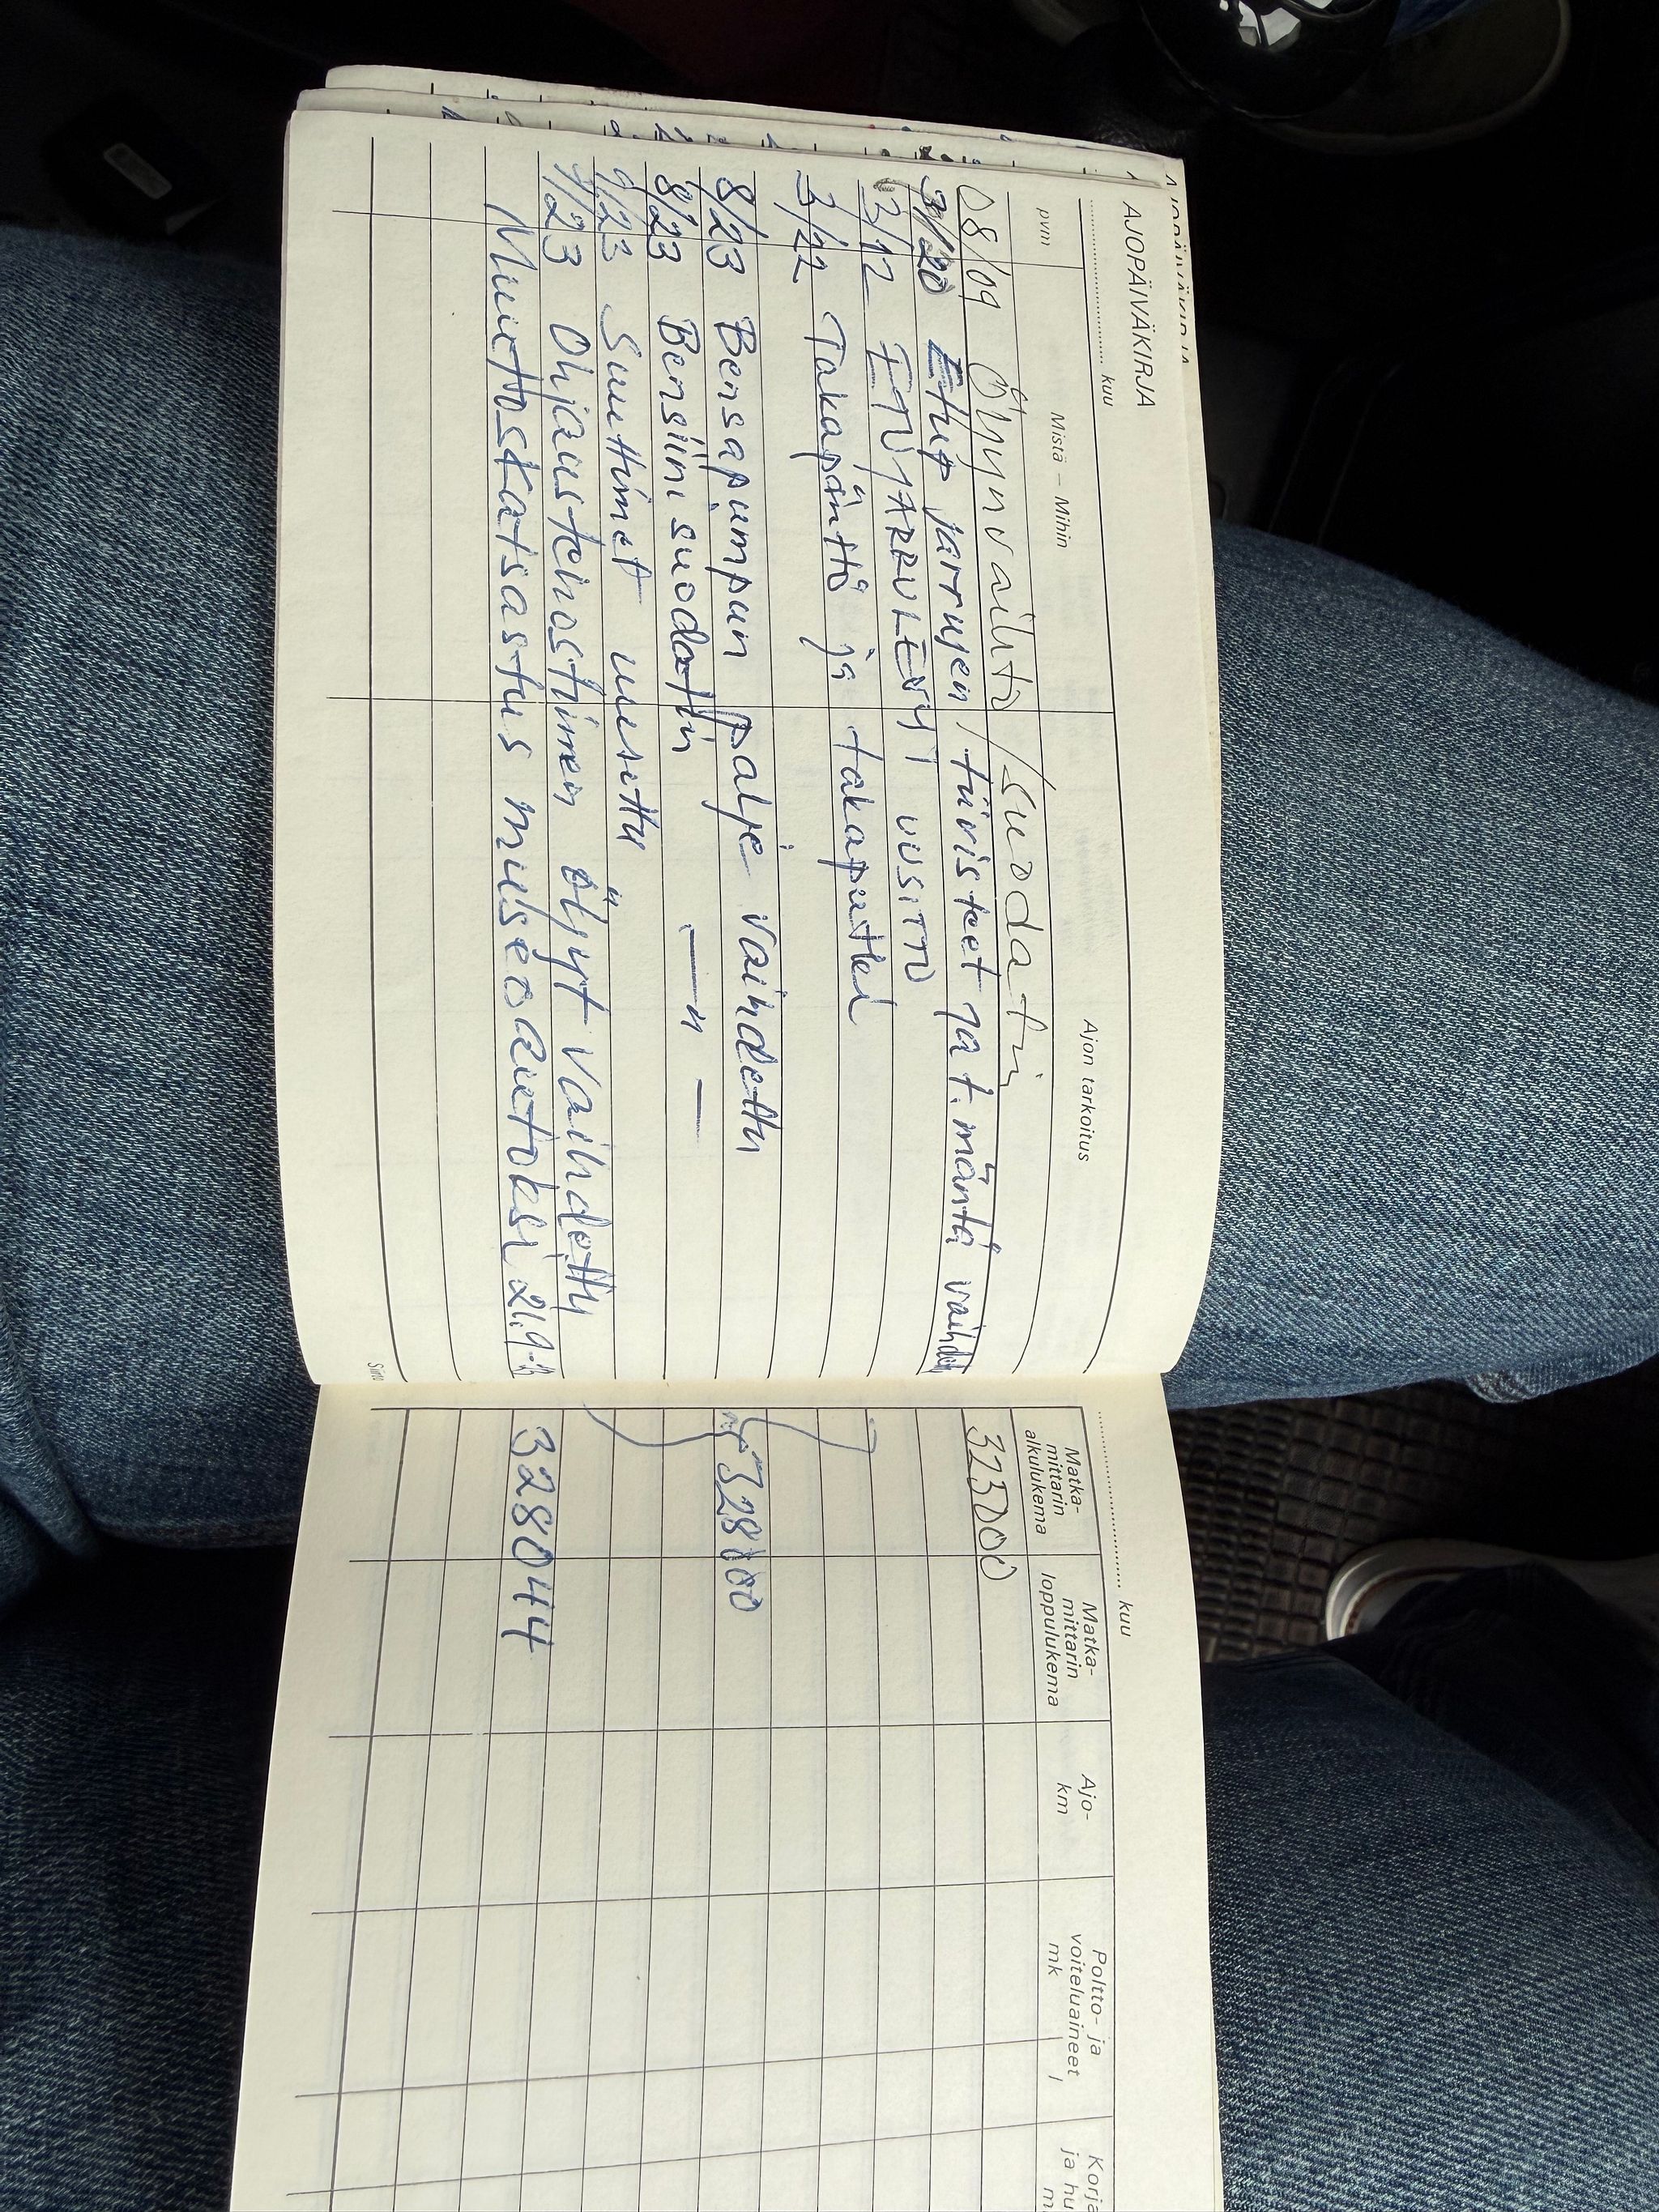 AJOPÄIVÄKIRJA
kuu
kuu
pvm Mistä – Mihin Ajon tarkoitus Matka-mittarin alkulukema Matka-mittarin loppulukema Ajo-km Poltto- ja voiteluaineet mk l
08/09 Öljynvaihto/suodatin 323000
9/20 Etup jarrujen / tiivisteet ja t. mäntä vaihdettu
3/12 ETUJARRULEVYT UUSITTU
3/22 Takapönttö ja takaputket
8/23 Bensapumpun palje vaihdettu 328000
8/23 Bensiini suodatin —〃—
9/23 Suuttimet uusittu
9/23 Ohjaustehostimen öljyt vaihdettu
Muutoskatsastus museoautoksi 21.9. 328044